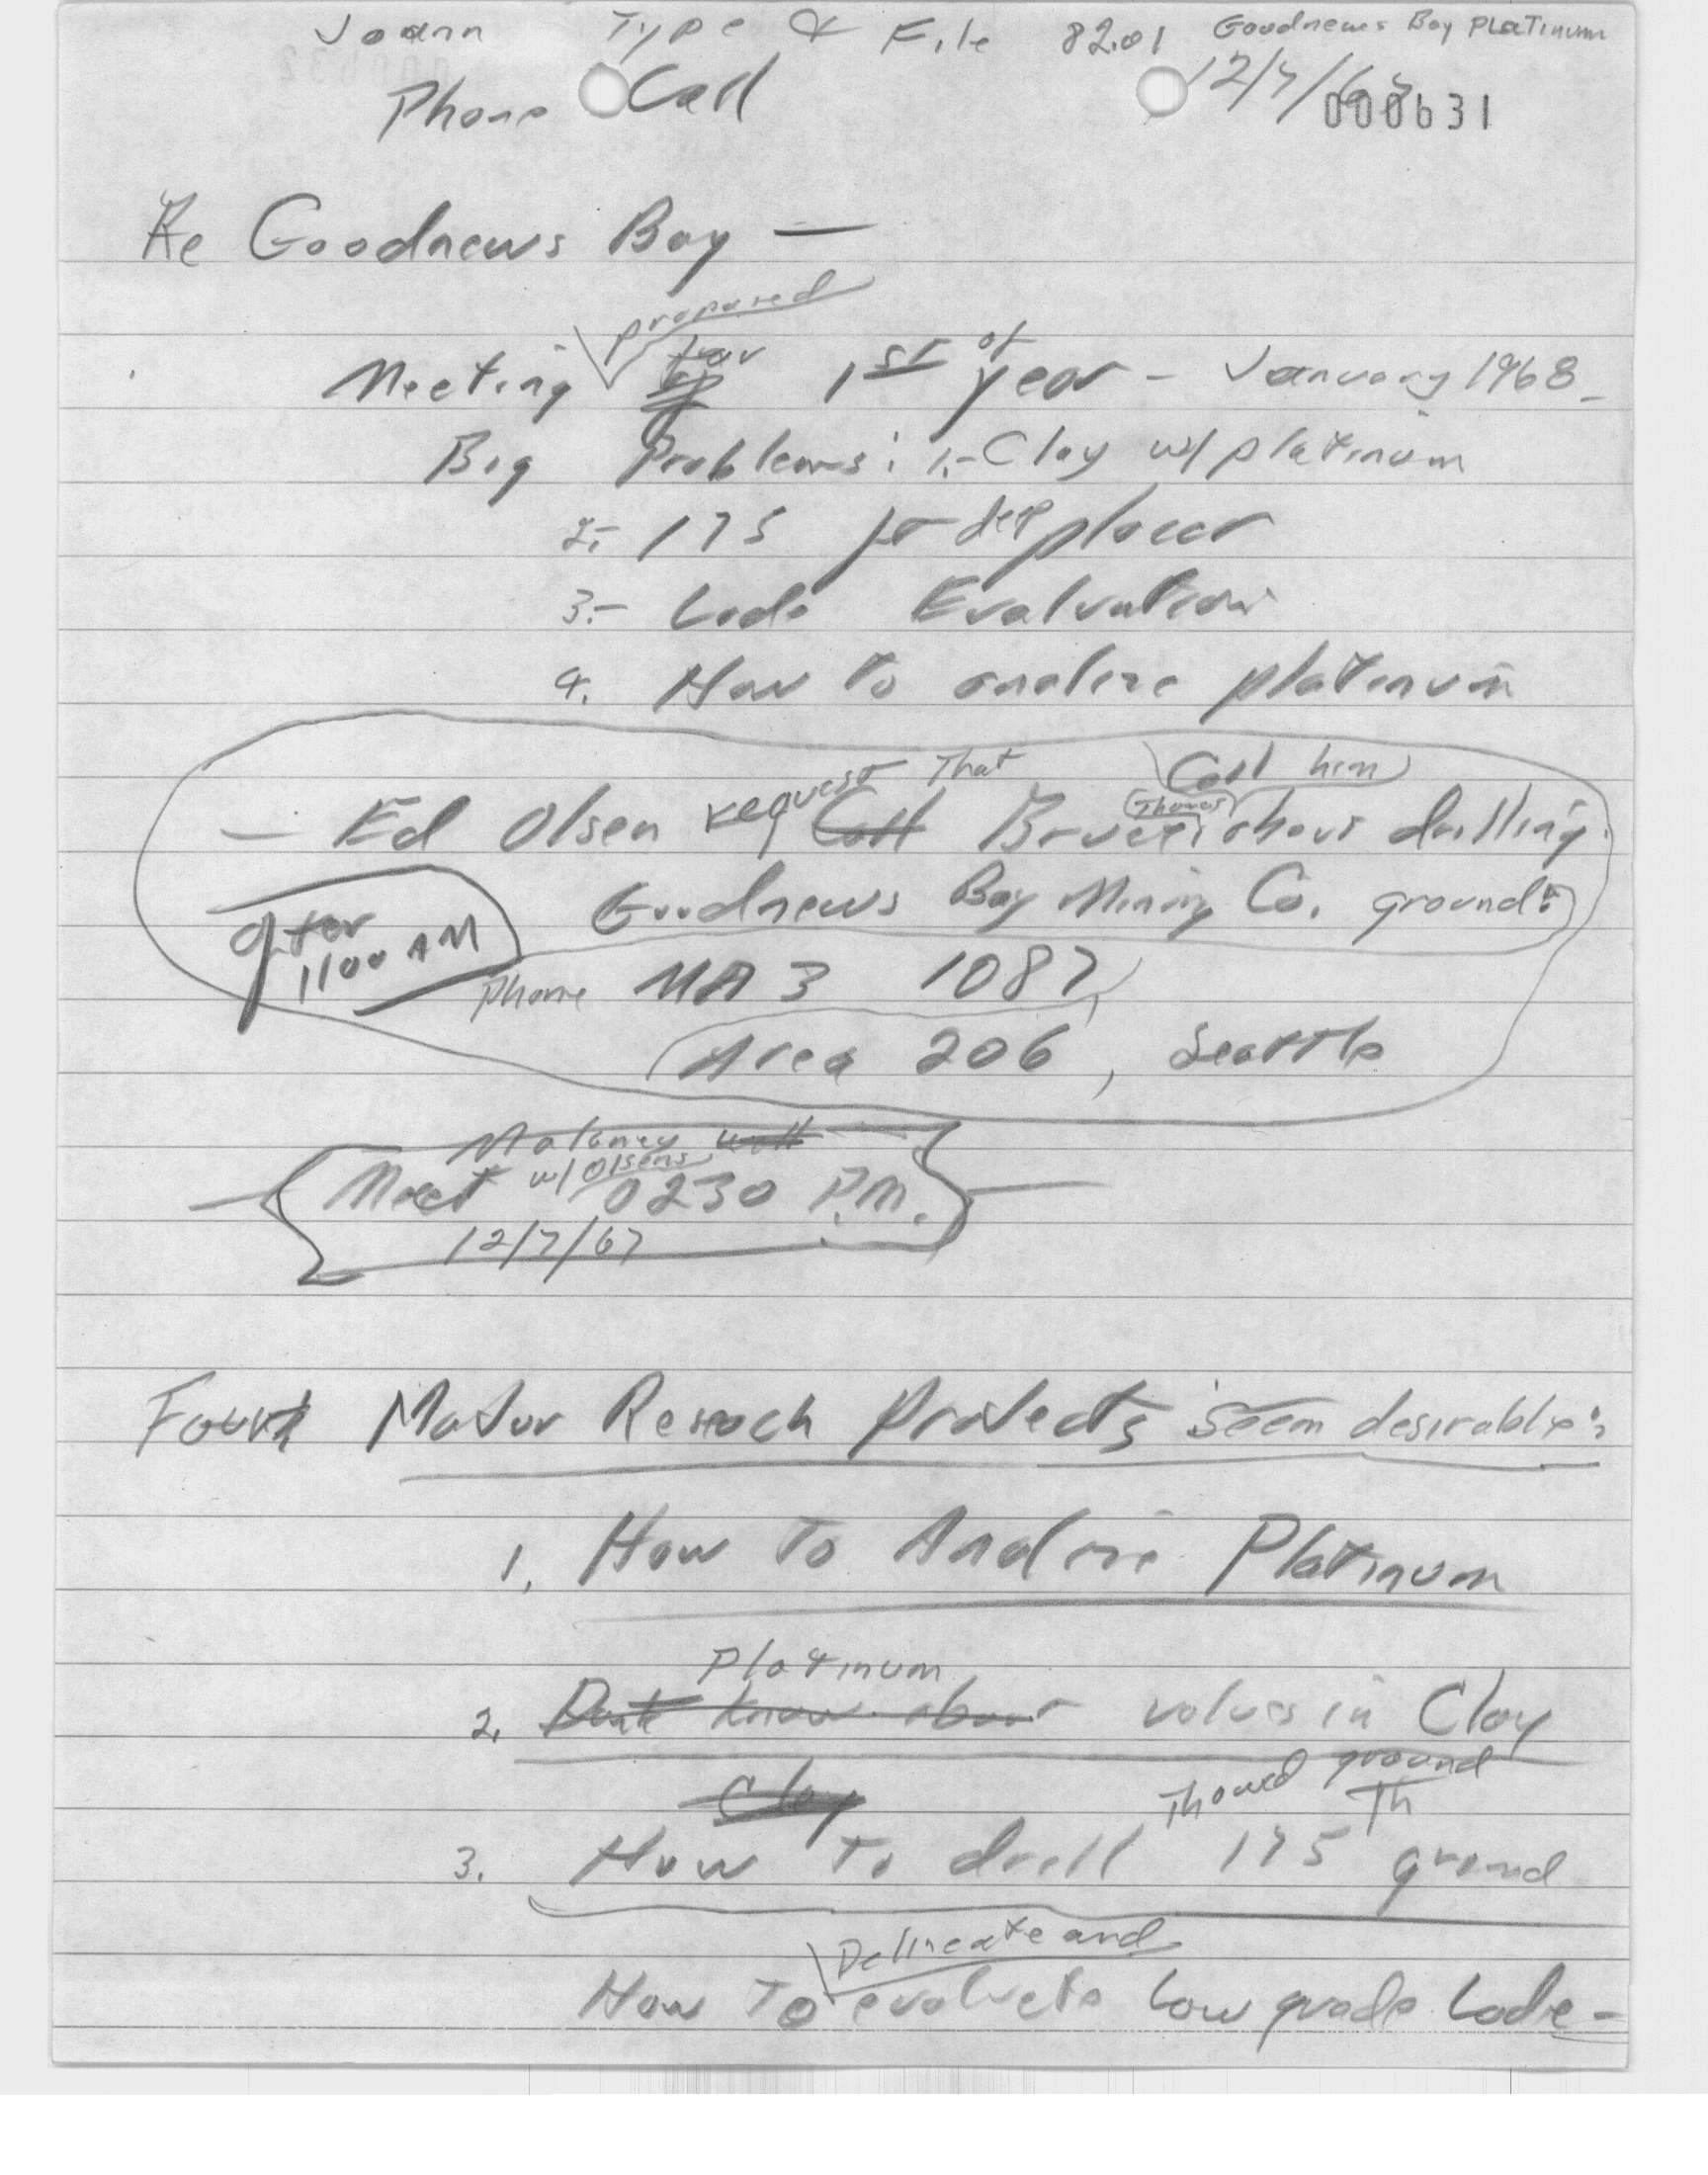 Joann Type & File 82.01 Goodnews Bay Platinum
Phone Call 12/7/67
000631
Re Goodnews Bay —
proposed
Meeting for 1st of year - January 1968
Big Problems: 1.- Clay w/ platinum
2.- 175 ft deep placer
3.- Lode Evaluation
4. How to analize platinum
request That Call him
— Ed Olsen Call Bruce Thomas drilling
Goodnews Bay Mining Co. ground.
after
1100 AM
Phone MA 3 1087
Area 206, Seattle
Maloney
Meet w/ Olsens 0230 P.M.
12/7/67
Four Major Reseach Projects seem desirable:
1. How To Analize Platinum
Platinum
2. Dont know about values in Clay
Clay
Thawed ground
3. How To drill 175 ground
Delineate and
How To evaluate Low grade Lode -